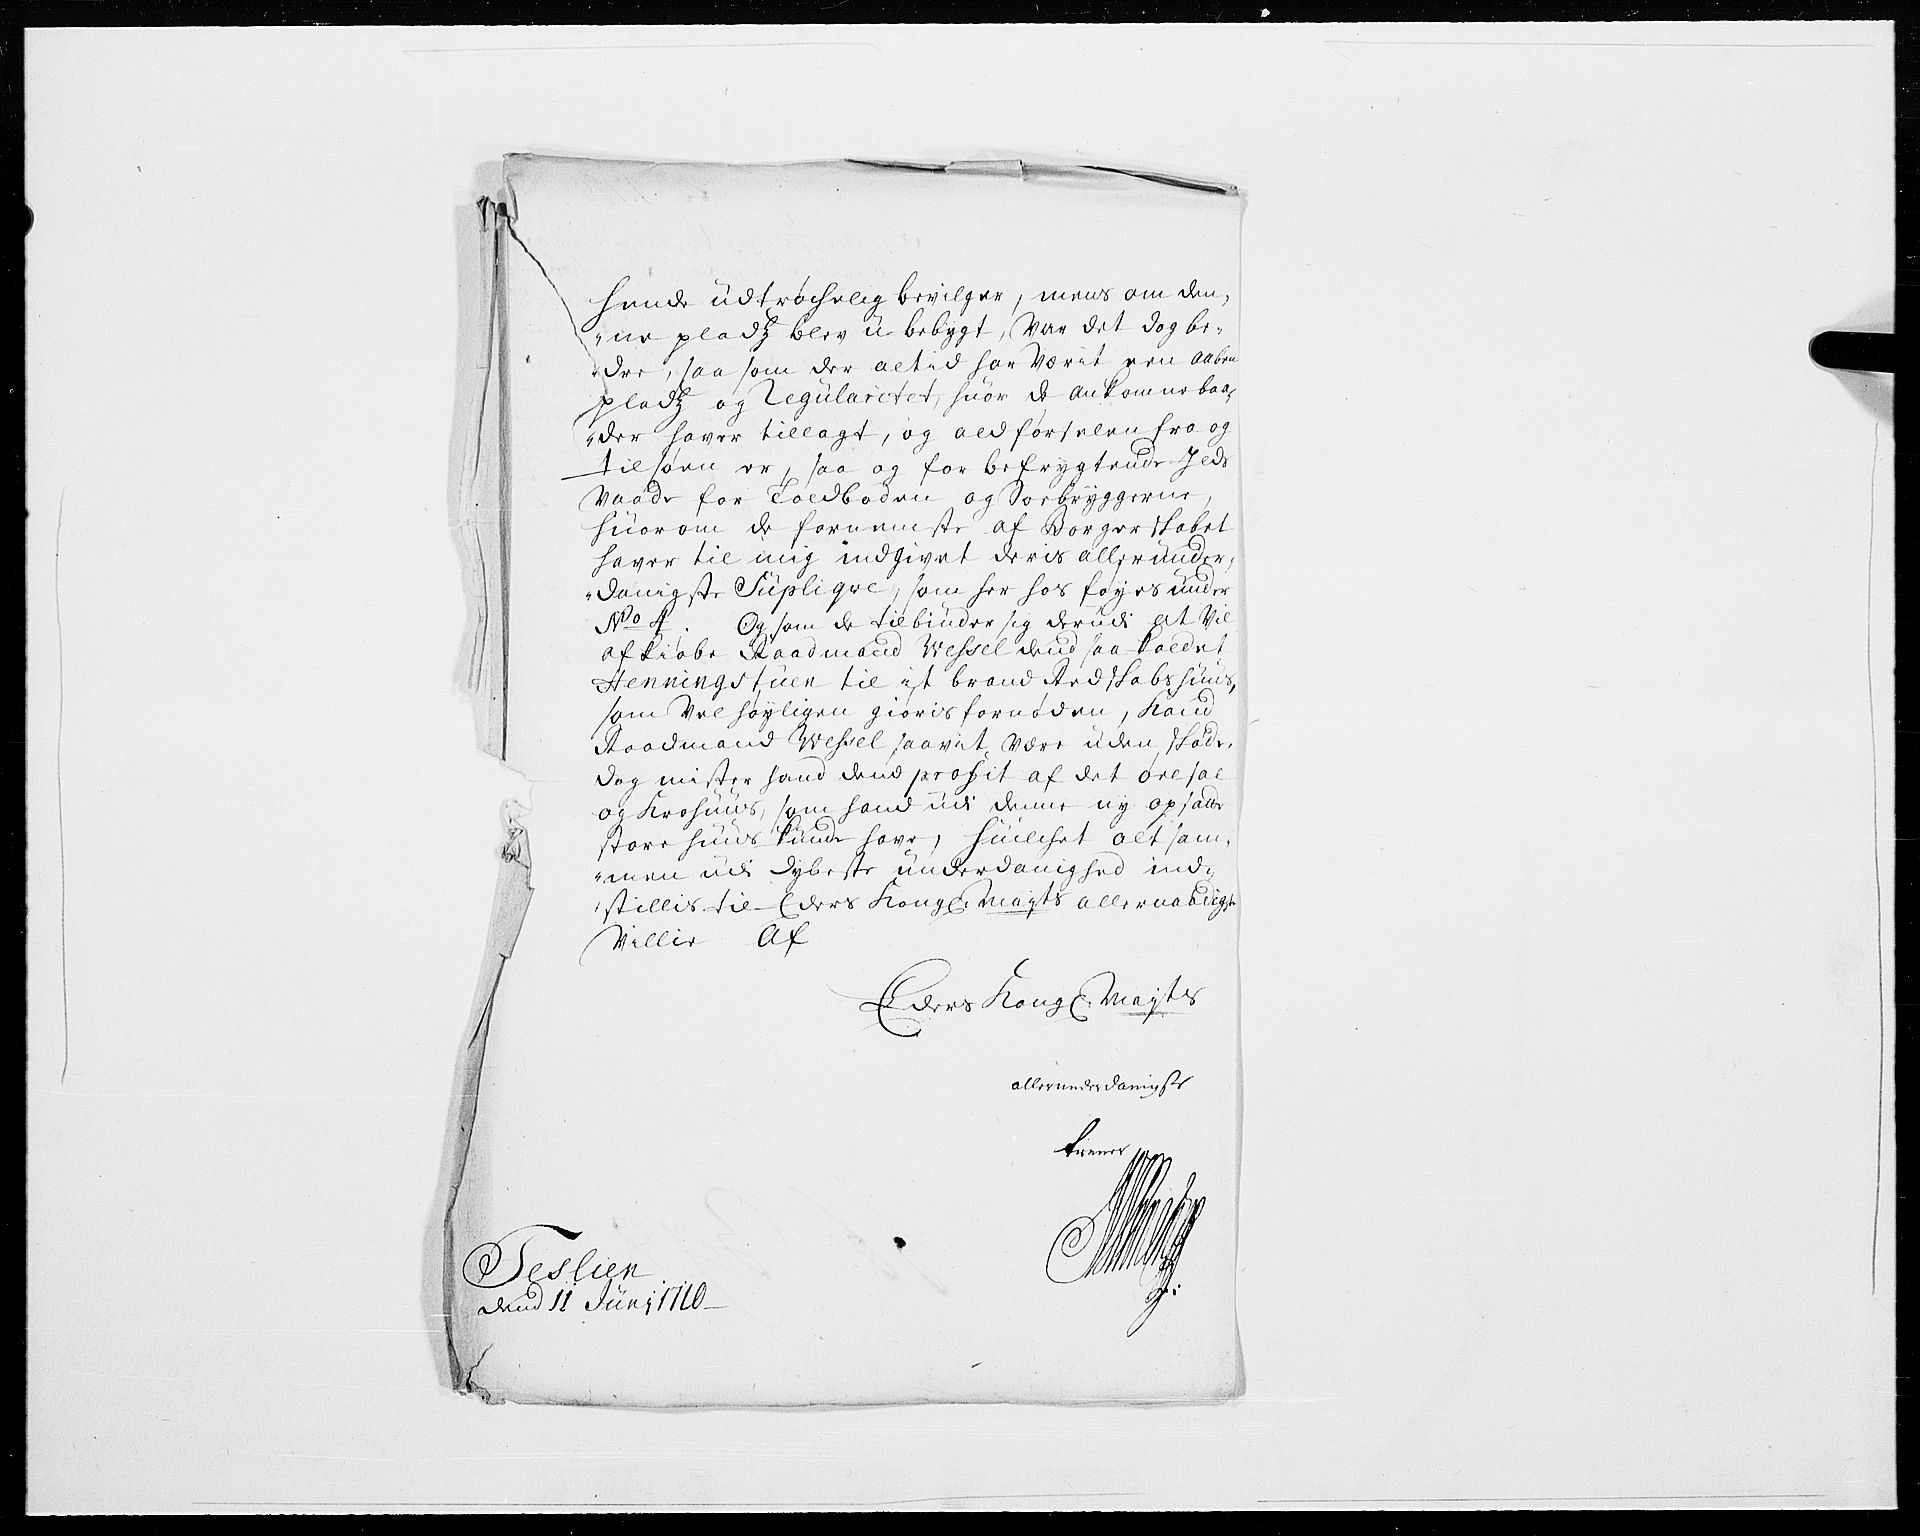 hende üdtröchelig bevilger, mens om den,
"ne pladz blev ü bebygt, Var det dog be,
"dre, saa som der altid har Værit een aaben
pladz og Regularitet, hüor de ankomne baa,
"der haver tillagt, og ald førselen fra og
til søen er, saa og for befrygtende Jlds
Vaade for Toldboden og Søebryggerne,
hüorom de fornemste af Borgerskabet
haver til mig indgivet deris alleründer,
"danigste Süpliqve, som her hos føyes ünder
No 4. Og som de tilbinder sig derüdi at Vil
afkiøbe Raadmand Wessel dend saa kaldet
Henningstüen til it brand Redskabs hüüs,
som Vel høyligen giøris fornøden, Kand
Raadmand Wessel saavit Være uden skade,
dog mister hand dend profit af det ølsal
og Krohüüs, som hand üdi denne ny opsatte
store hüüs künde have, hüilchet alt sam,
"men üdi dybeste ünderdanighed ind,
stillis til Eders Kongl: Mayts allernaadigste
Villie Af
Eders Kongl: Mayts
allerunderdanigste
tienner
Teslien
dend 11 Jüni 1710